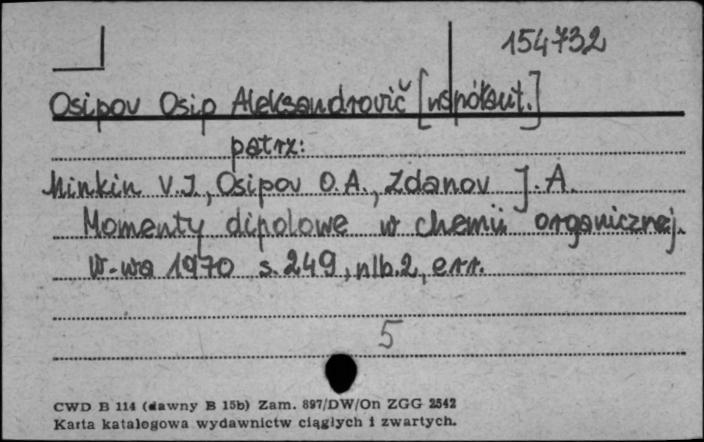 154732
Osipov Osip Aleksandrovič [współaut.]
patrz:
Minkin V.I., Osipov O.A., Zdanov J.A.
Momenty dipolowe w chemii organicznej.
W-wa 1970 s. 249, nlb. 2, err.
5
CWD B 114 (dawny B 15b) Zam. 897/DW/On ZGG 2542
Karta katalogowa wydawnictw ciągłych i zwartych.